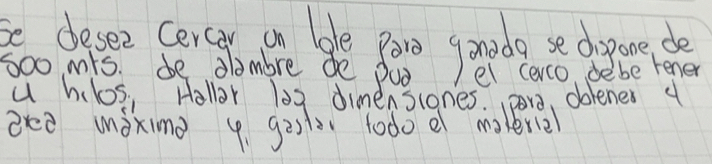 Se desea cercar un lote para ganado se dispone de
500 mts. de alambre de pua y el cerco debe tener
4 hilos, Hallar las dimensiones. para obtener 4
area máxima y gastar todo el material